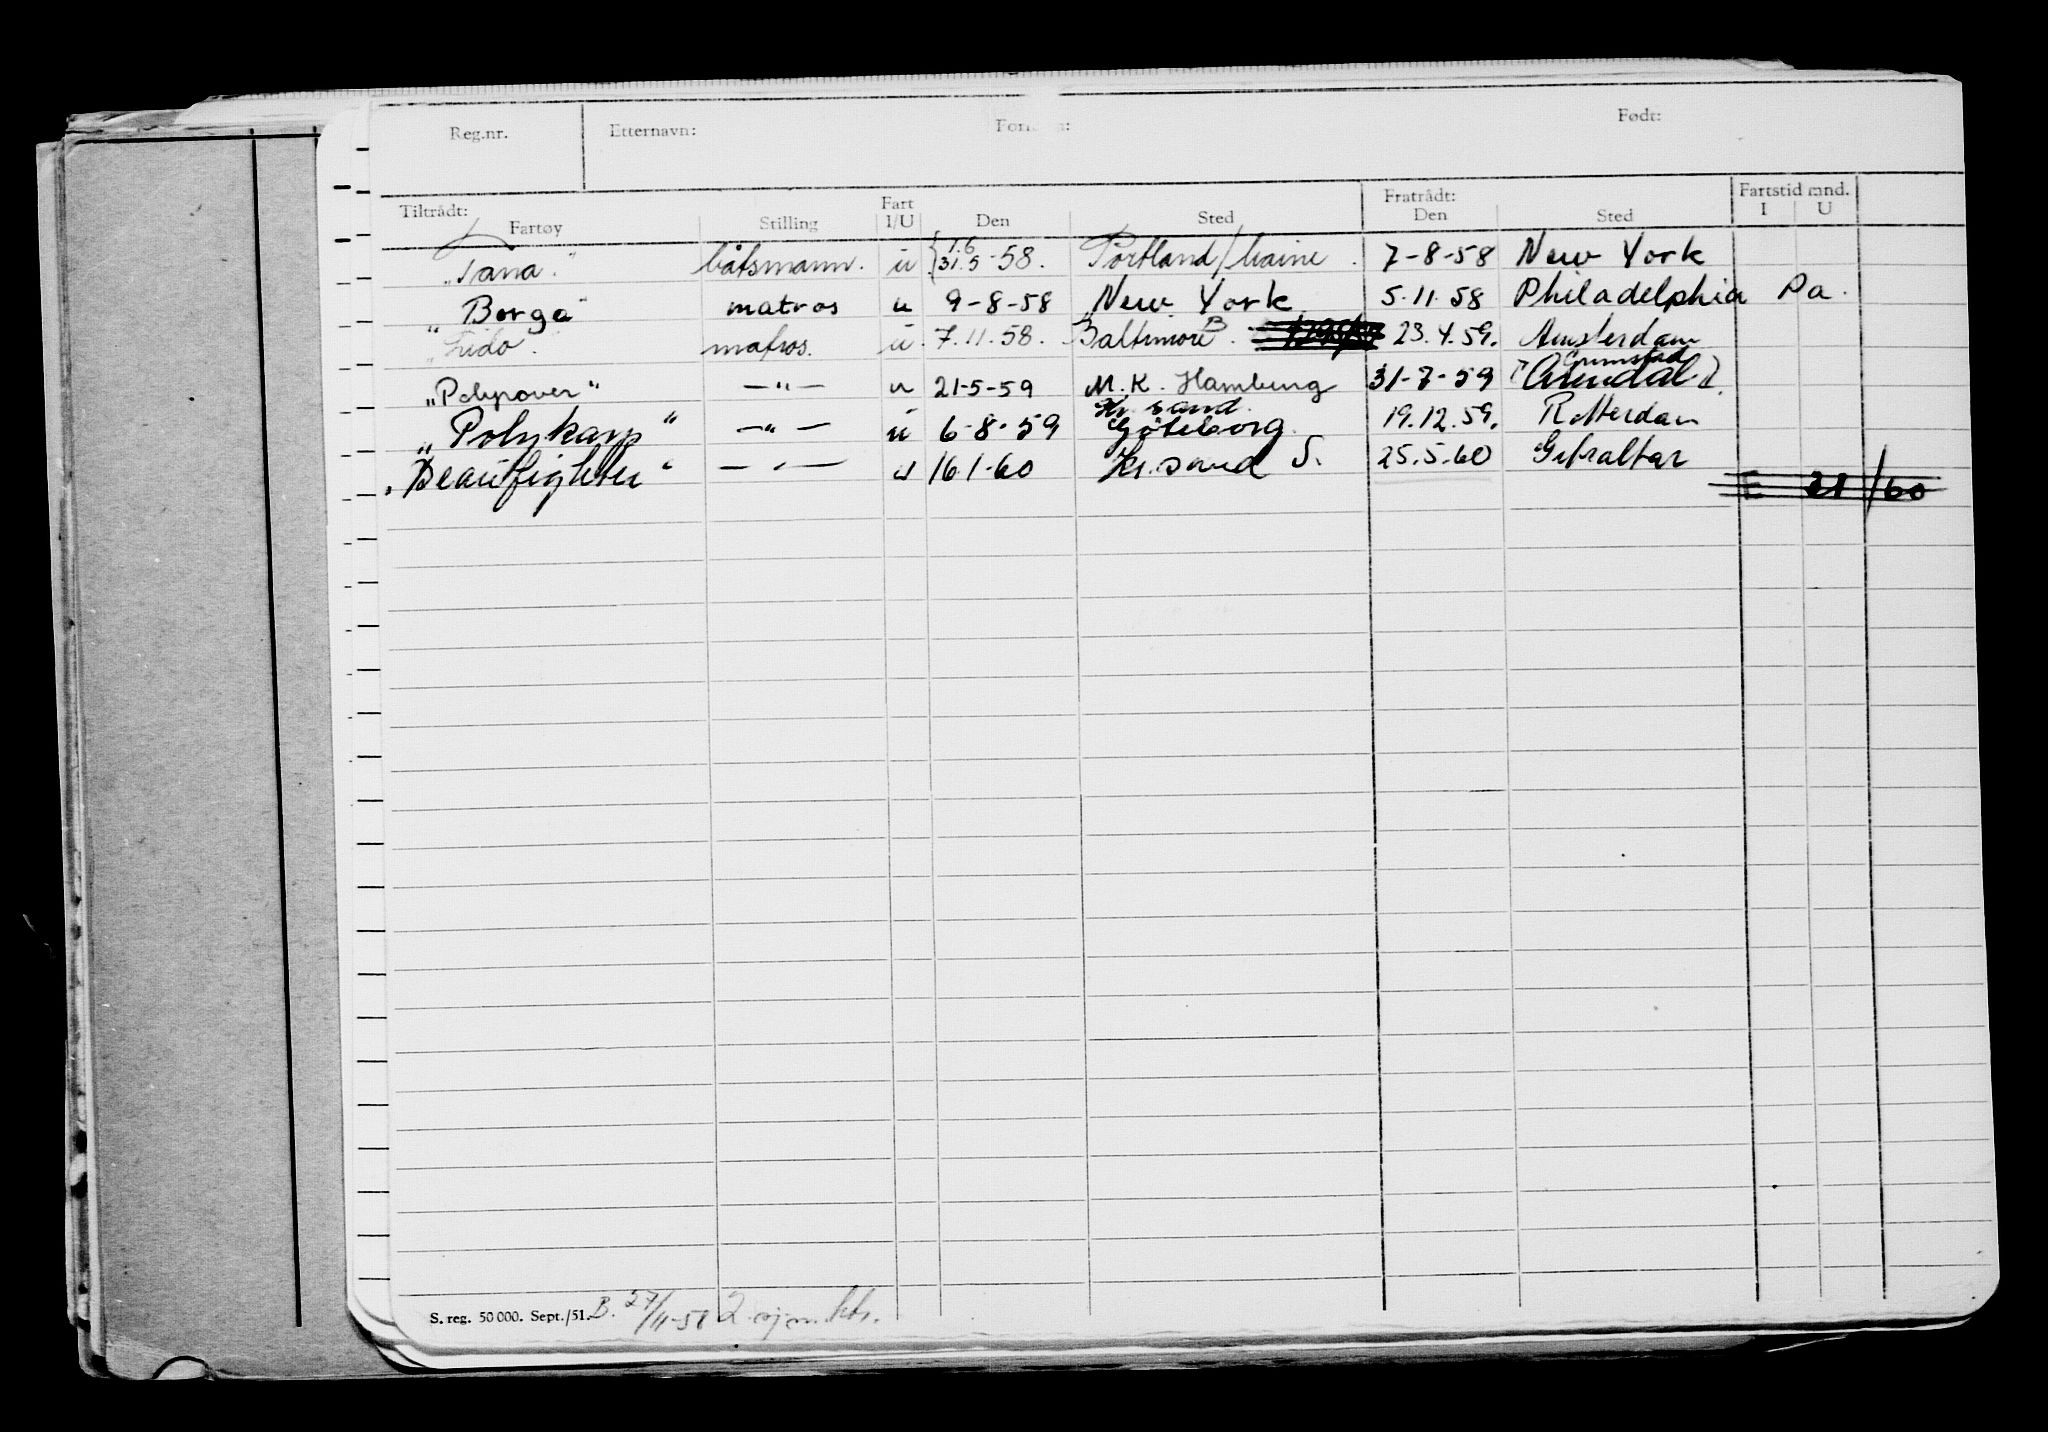 Reg.nr. Etternavn: Født:
Tiltrådt: Fart Fratrådt: Fartstid mnd.
Fartøy Stilling I/U Den Sted Den Sted I U
"Tana." båtsmann. u {1.6 31.5-58. Portland/Maine. 7-8-58 New York
"Borga" matros u 9-8-58 New York 5.11.58 Philadelphia Pa.
"Lido". matros. u. 7.11.58. Baltimore B. 23.4.59. Amsterdam
Grimstad
"Polypover" —"— u 21-5-59 M.K. Hamburg 31-7-59 (Arendal).
Kr. sand.
"Polykarp" —"— u 6-8-59 Göteborg. 19.12.59. Rotterdam
"Beaufighter" —"— u 16.1-60 Kr.sand S. 25.5.60 Gibraltar
E 21/60
S. reg. 50 000. Sept./51. B. 27/11-58 2